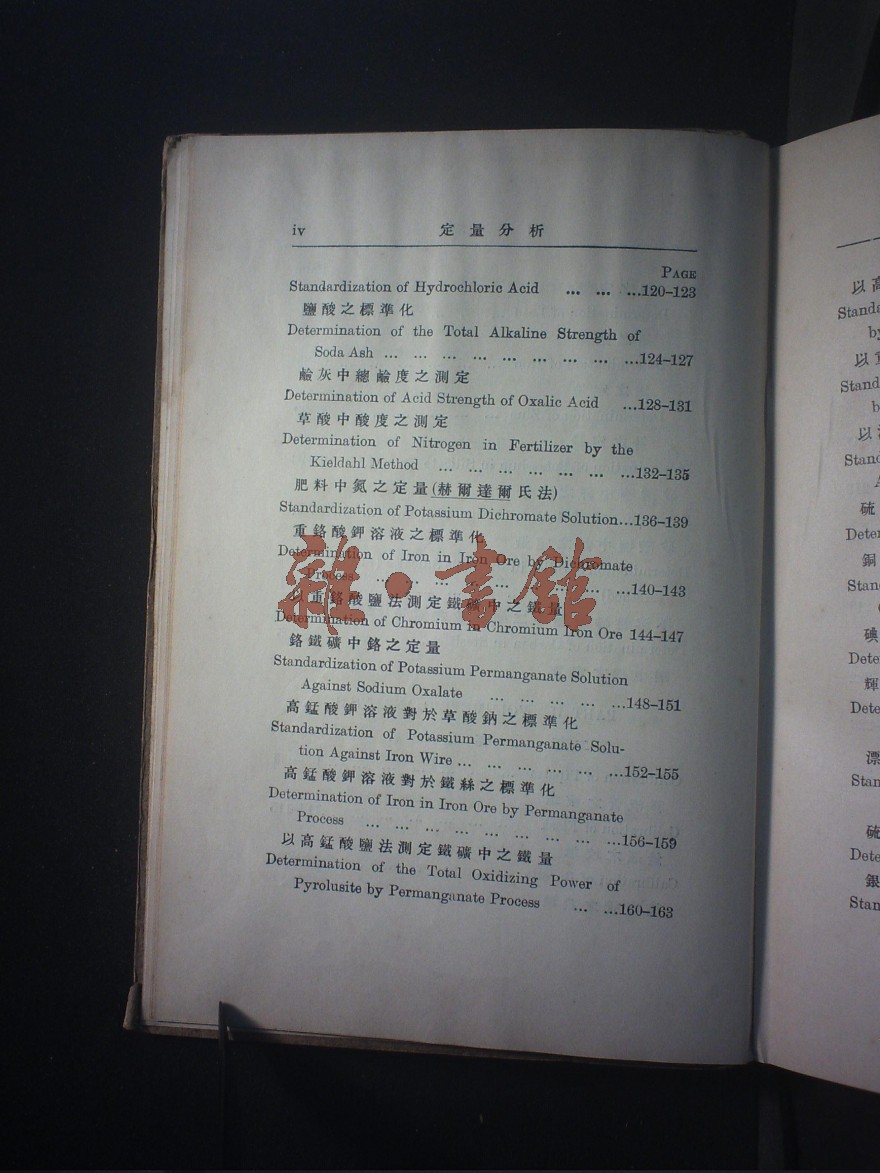 iv 定量分析
PAGE
Standardization of Hydrochloric Acid ... ... ...120–123
鹽酸之標準化
Determination of the Total Alkaline Strength of
Soda Ash ... ... ... ... ... ... ... ... ...124–127
鹼灰中總鹼度之測定
Determination of Acid Strength of Oxalic Acid ...128–131
草酸中酸度之測定
Determination of Nitrogen in Fertilizer by the
Kieldahl Method ... ... ... ... ... ... ...132–135
肥料中氮之定量(赫爾達爾氏法)
Standardization of Potassium Dichromate Solution...136–139
重鉻酸鉀溶液之標準化
Determination of Iron in Iron Ore by Dichromate
Process ... ... ... ... ... ... ... ... ...140–143
以重鉻酸鹽法測定鐵礦中之鐵量
Determination of Chromium in Chromium Iron Ore 144–147
鉻鐵礦中鉻之定量
Standardization of Potassium Permanganate Solution
Against Sodium Oxalate ... ... ... ... ...148–151
高錳酸鉀溶液對於草酸鈉之標準化
Standardization of Potassium Permanganate Solu-
tion Against Iron Wire ... ... ... ... ... ...152–155
高錳酸鉀溶液對於鐵絲之標準化
Determination of Iron in Iron Ore by Permanganate
Process ... ... ... ... ... ... ... ... ...156–159
以高錳酸鹽法測定鐵礦中之鐵量
Determination of the Total Oxidizing Power of
Pyrolusite by Permanganate Process ... ...160–163
雜·書館
以高
Standa
by
以重
Stand
b
以
Stan
A
硫
Deter
銅
Stan
(
碘
Dete
輝
Dete
漂
Stan
硫
Dete
銀
Stan